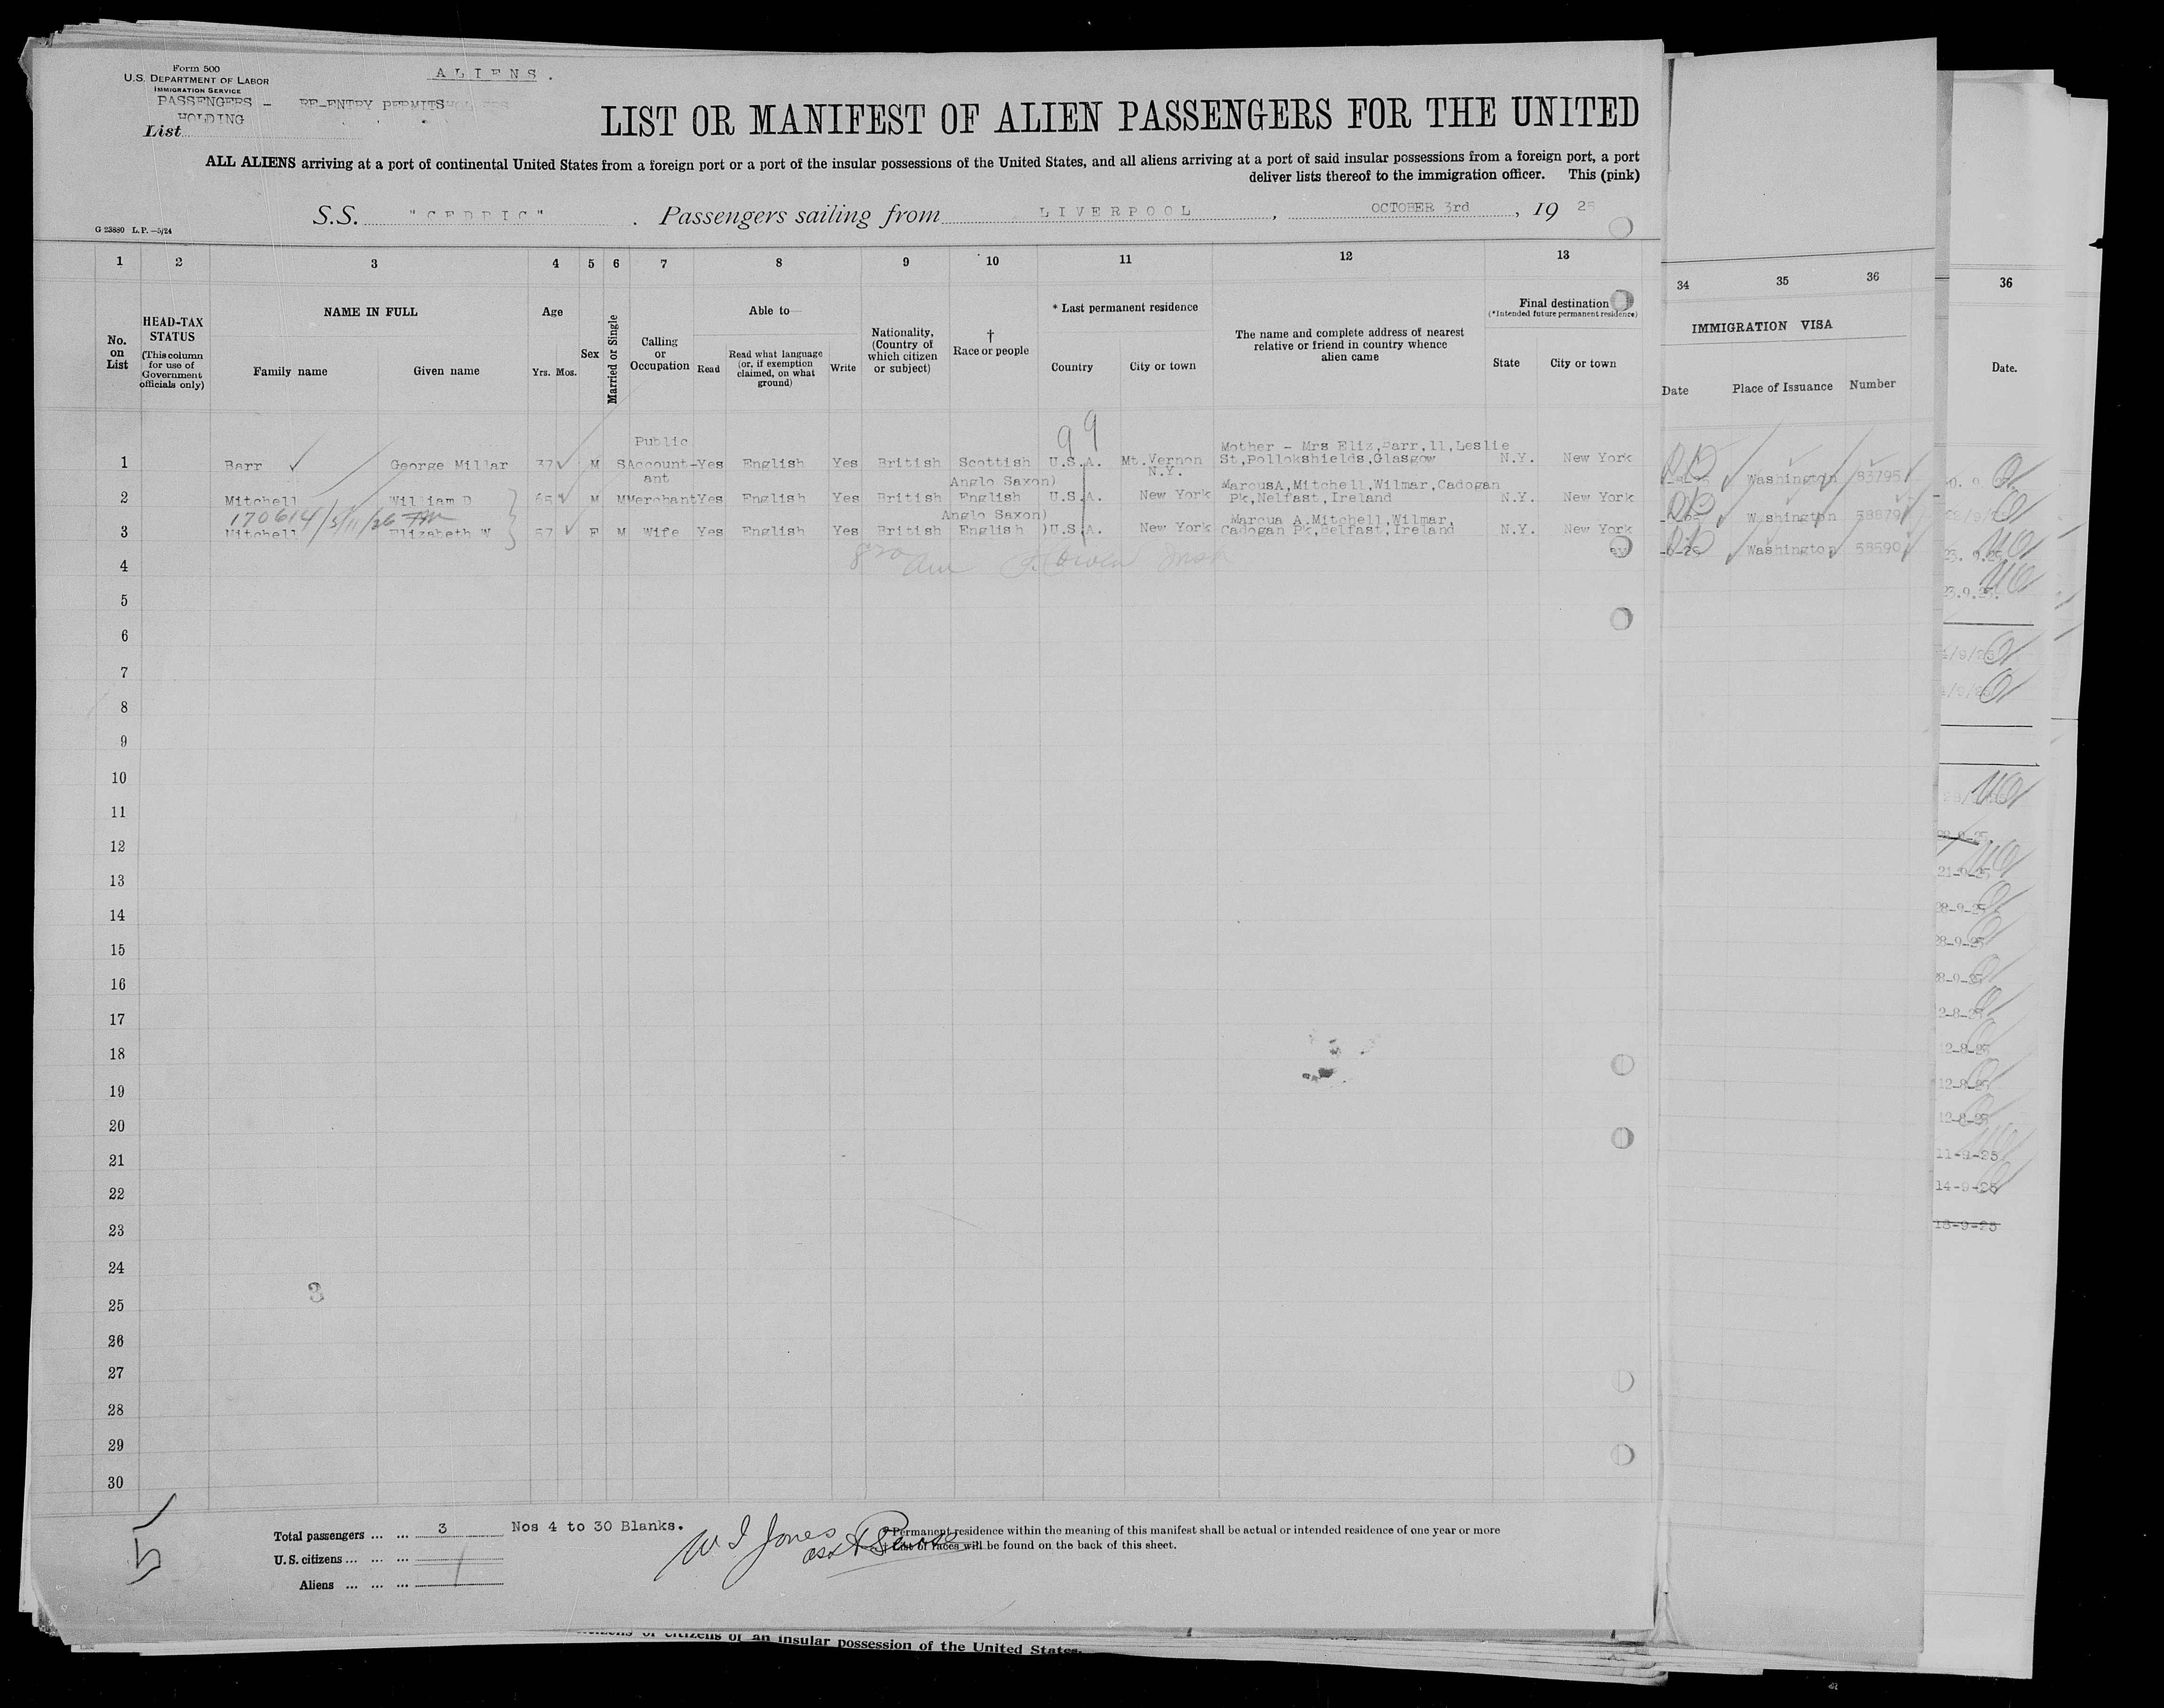 Form 500
U.S. DEPARTMENT OF LABOR
IMMIGRATION SERVICE
ALIENS.
PASSENGERS - RE-ENTRY PERMITS
HOLDING
List
LIST OR MANIFEST OF ALIEN PASSENGERS FOR THE UNITED
ALL ALIENS arriving at a port of continental United States from a foreign port or a port of the insular possessions of the United States, and all aliens arriving at a port of said insular possessions from a foreign port, a port
deliver lists thereof to the immigration officer. This (pink)
S.S. "CEDRIC" . Passengers sailing from LIVERPOOL , OCTOBER 3rd , 19 25
G 23880 L.P.—5/24
1 2 3 4 5 6 7 8 9 10 11 12 13
34 35 36
36
No. on List
HEAD-TAX STATUS (This column for use of Government officials only)
NAME IN FULL
Family name Given name
Age
Yrs. Mos.
Sex
Married or Single
Calling or Occupation
Able to—
Read
Read what language (or, if exemption claimed, on what ground)
Write
Nationality, (Country of which citizen or subject)
† Race or people
* Last permanent residence
Country City or town
The name and complete address of nearest relative or friend in country whence alien came
Final destination
(*Intended future permanent residence)
State City or town
IMMIGRATION VISA
Date Place of Issuance Number
Date.
99
Public Mother - Mrs Eliz,Barr,11,Leslie
1 Barr George Millar 37 M S Account- Yes English Yes British Scottish U.S.A. Mt.Vernon St,Pollokshields,Glasgow N.Y. New York Washington 83795
ant Anglo Saxon) N.Y. MarcusA,Mitchell,Wilmar,Cadogan
2 Mitchell William D 65 M M Merchant Yes English Yes British English U.S.A. New York Pk,Nelfast,Ireland N.Y. New York Washington 58879
170614/5/11/26
Anglo Saxon) Marcua A.Mitchell,Wilmar,
3 Mitchell Elizabeth W 57 F M Wife Yes English Yes British English )U.S.A. New York Cadogan Pk,Belfast,Ireland N.Y. New York Washington 58590
4
5
6
7
8
9
10
11
12
13
14
15
16
17
18
19
20
21
22
23
24
25
26
27
28
29
30
3
23.9.25.
21-9-25
28-9-25
28-9-25
12-8-25
12-8-25
12-8-25
11-9-25
14-9-25
18-9-25
5
Total passengers ... ... 3 Nos 4 to 30 Blanks.
U.S. citizens ... ... ...
Aliens ... ... ...
W I Jones
asst Purser
* Permanent residence within the meaning of this manifest shall be actual or intended residence of one year or more
† List of races will be found on the back of this sheet.
citizens of an insular possession of the United States.